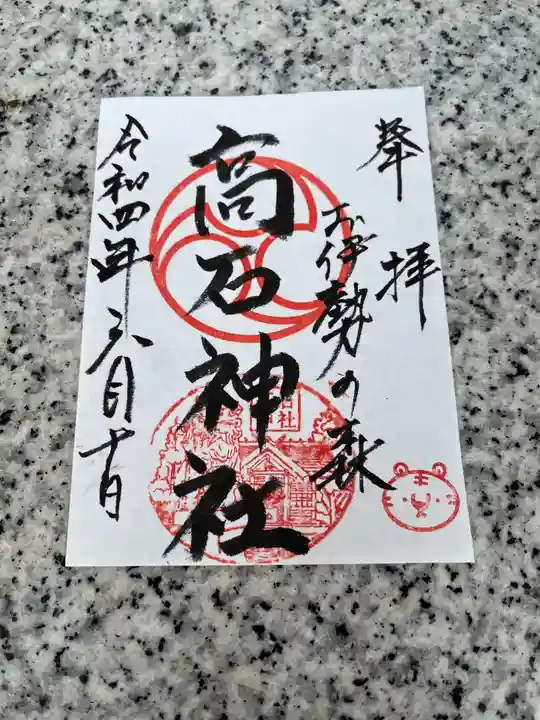 奉拝
お伊勢の森
高石神社
令和四年 六月十日